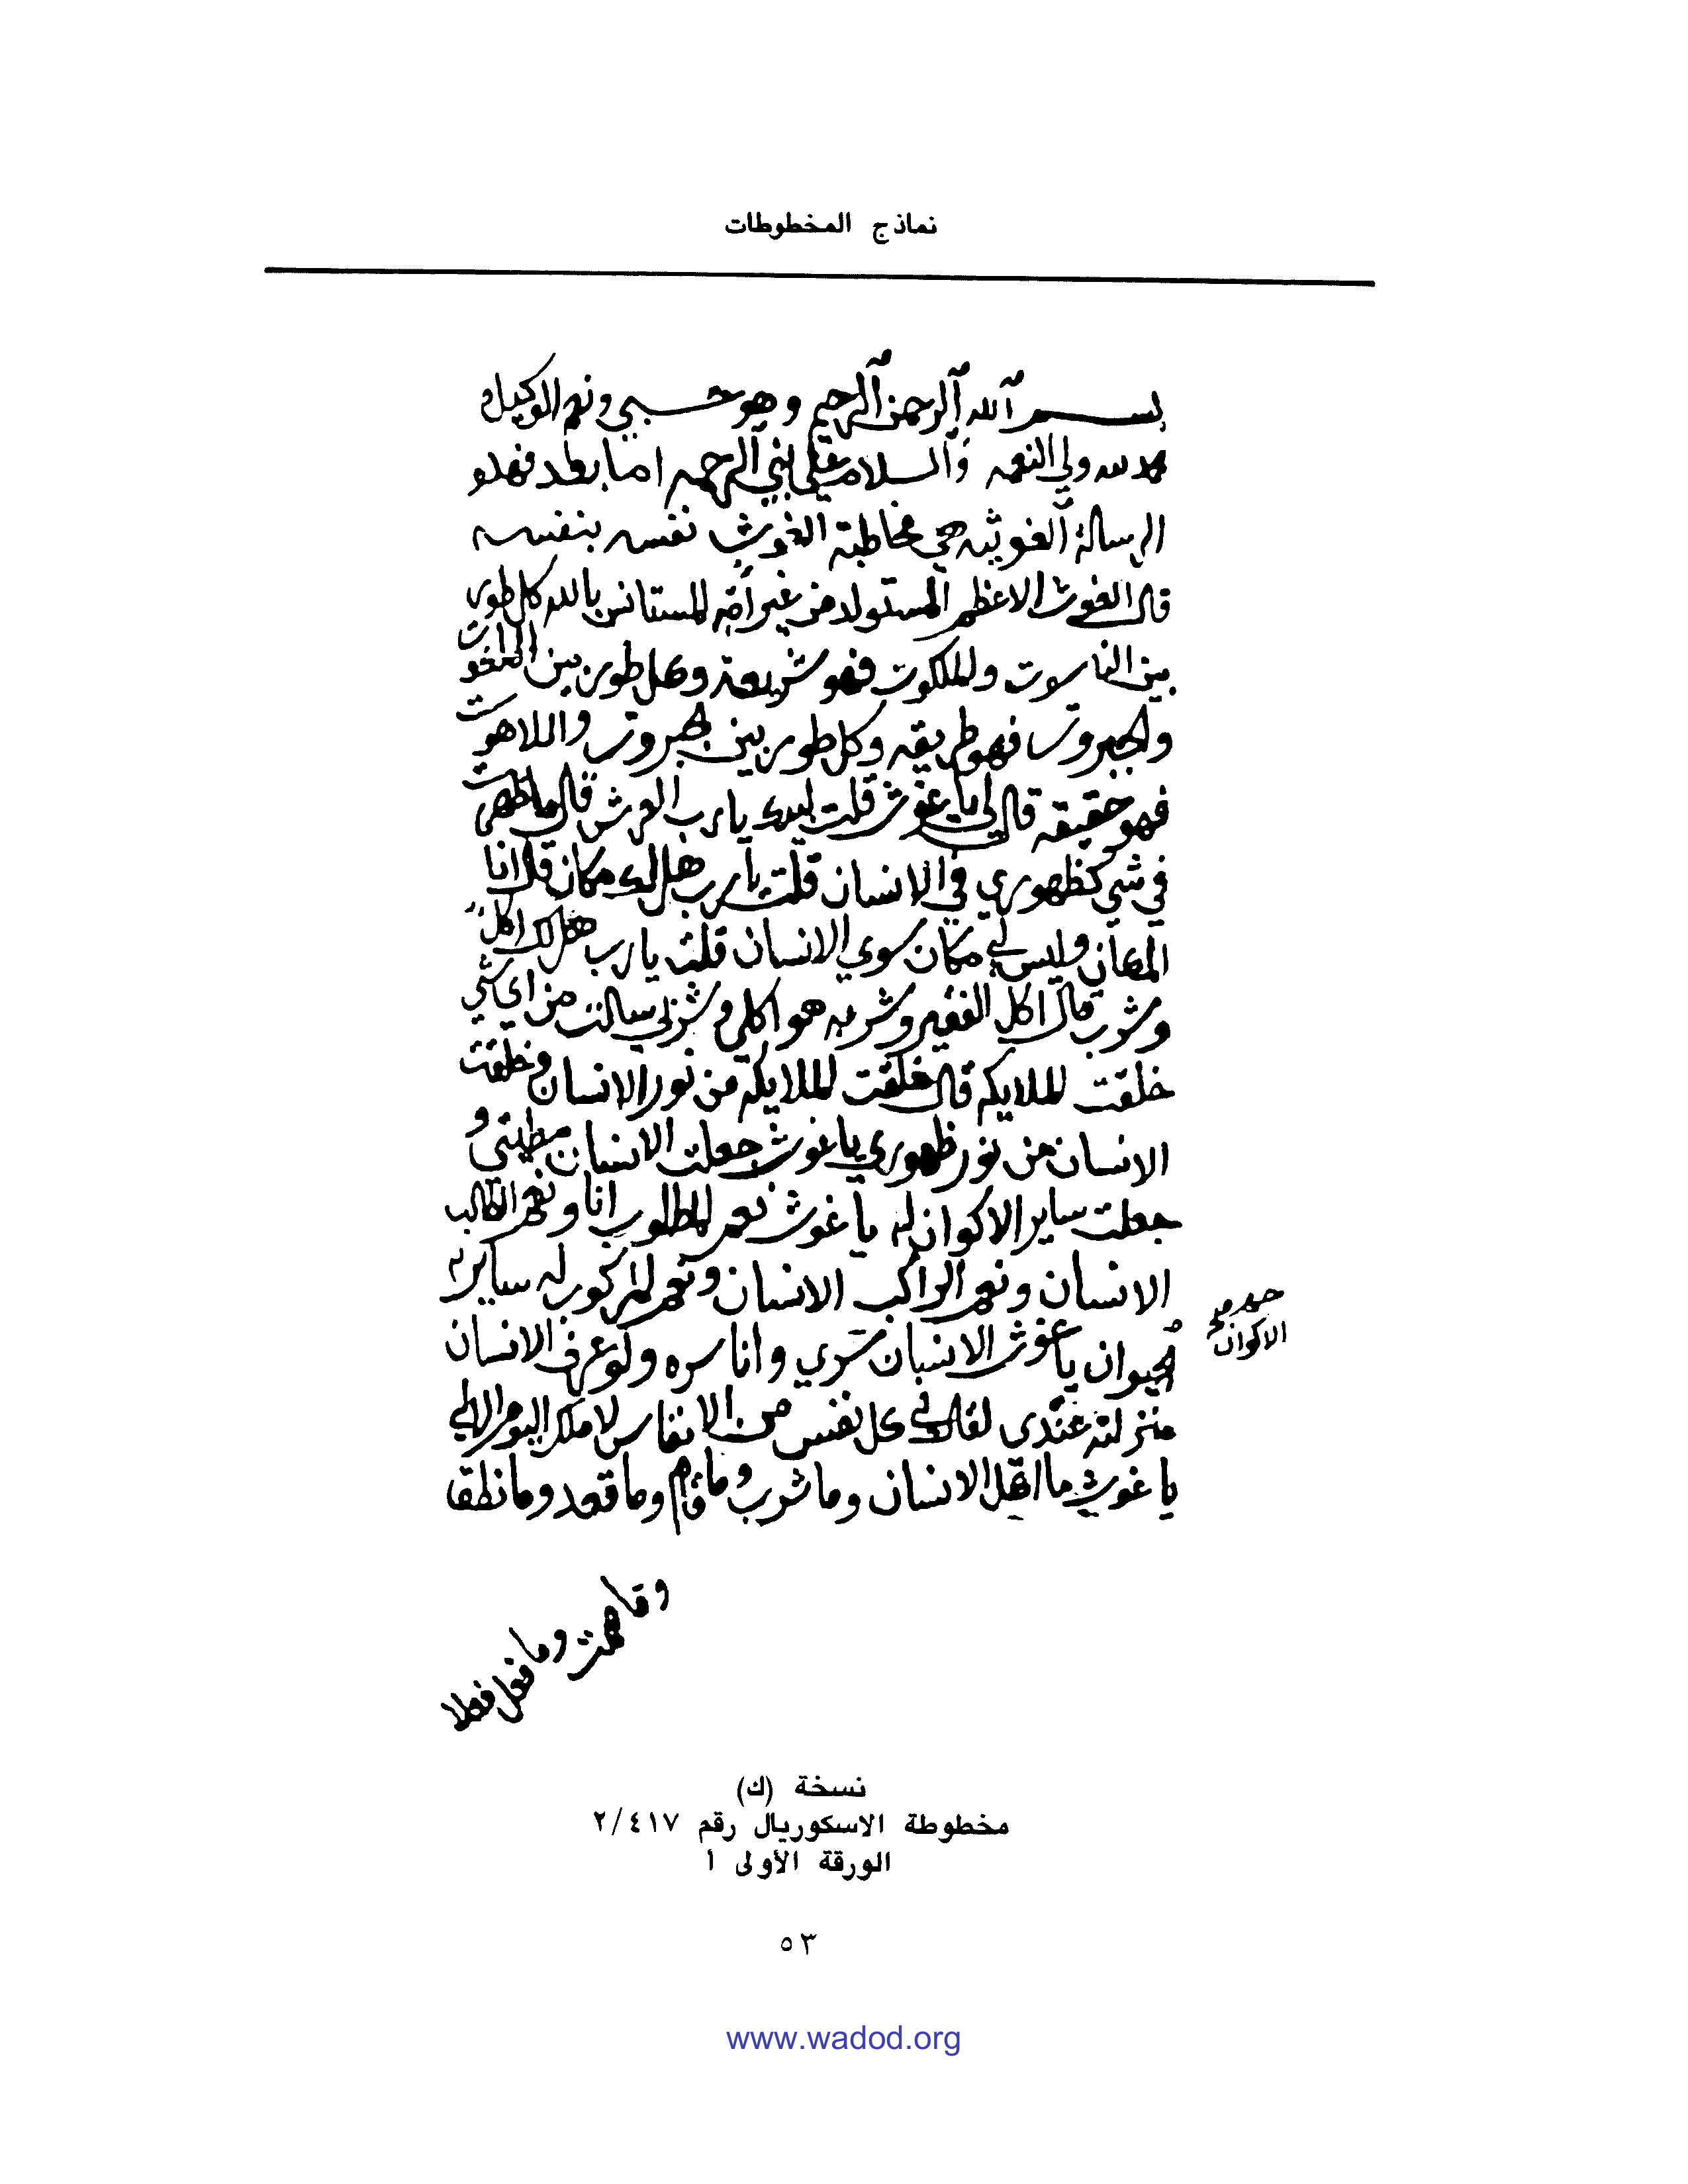 نماذج المخطوطات
بسم الله الرحمن الرحيم وهو حسبي ونعم الوكيل
لله ولي النعمه والسلام على نبي الرحمه اما بعد فهذه
الرسالة الغوثيه هي مخاطبة الغوث نفسه بنفسه
قال الغوث الاعظم المستانس بالله كل طور
بين الناسوت والملكوت فهو شريعة وكل طور بين
والجبروت فهو طريقه وكل طور بين الجبروت واللاهوت
فهو حقيقه قال لي يا غوث قلت لبيك يا رب العرش قال ما ظهرت
في شي كظهوري في الانسان قلت يا رب هل لك مكان قال انا
المكان وليس لي مكان سوي الانسان قلت يا رب هل لك اكل
وشرب قال اكل الفقير وشربه هو اكلي وشربي سالت من اي شي
خلقت الملايكه قال خلقت الملايكة من نور الانسان وخلقت
الانسان من نور ظهوري يا غوث جعلت الانسان مطيتي و
جعلت ساير الاكوان له يا غوث نعم المطلوب انا ونعم الطالب
الانسان ونعم الراكب الانسان ونعم المركوب له ساير
الاكوان
الحيوان يا غوث الانسان سري وانا سره ولو عرف الانسان
منزلته عندي لقال في كل نفس من الانفاس لا ملك اليوم الا لي
يا غوث ما اكل الانسان وما شرب وما قام وما قعد وما نطق
وما وما فعل فعلا
نسخة (ك)
مخطوطة الاسكوريال رقم ٢/٤١٧
الورقة الأولى أ
٥٣
www.wadod.org